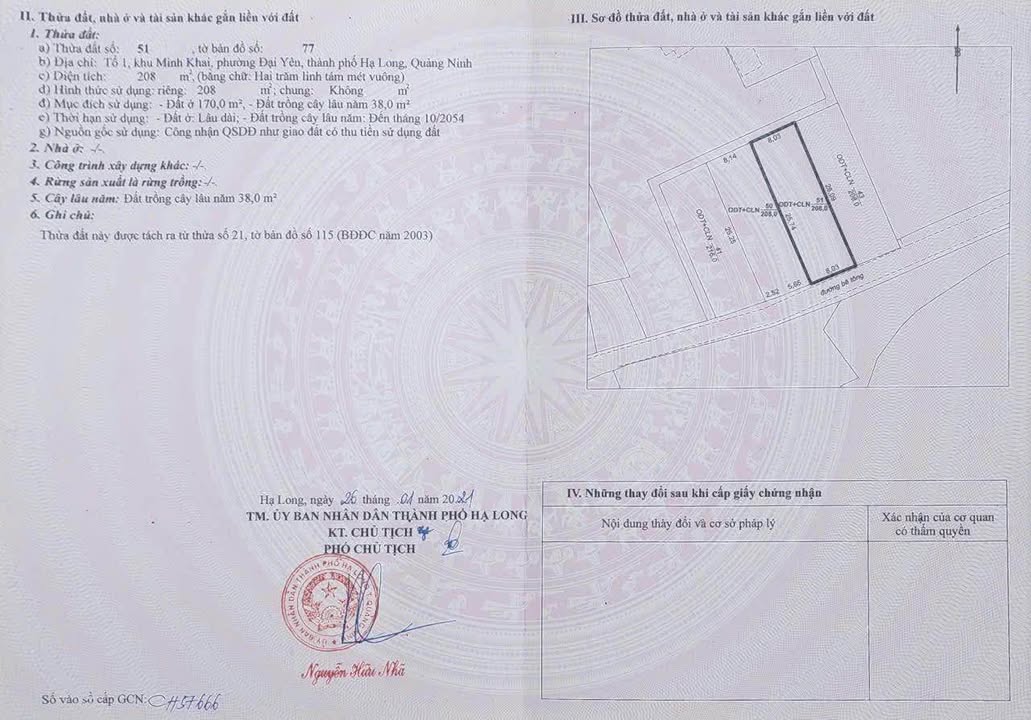 II. Thửa đất, nhà ở và tài sản khác gắn liền với đất
1. Thửa đất:
a) Thửa đất số: 51 , tờ bản đồ số: 77
b) Địa chỉ: Tổ 1, khu Minh Khai, phường Đại Yên, thành phố Hạ Long, Quảng Ninh
c) Diện tích: 208 m², (bằng chữ: Hai trăm linh tám mét vuông)
d) Hình thức sử dụng: riêng: 208 m²; chung: Không m²
đ) Mục đích sử dụng: - Đất ở 170,0 m², - Đất trồng cây lâu năm 38,0 m²
e) Thời hạn sử dụng: - Đất ở: Lâu dài; - Đất trồng cây lâu năm: Đến tháng 10/2054
g) Nguồn gốc sử dụng: Công nhận QSDĐ như giao đất có thu tiền sử dụng đất
2. Nhà ở: -/-
3. Công trình xây dựng khác: -/-
4. Rừng sản xuất là rừng trồng: -/-
5. Cây lâu năm: Đất trồng cây lâu năm 38,0 m²
6. Ghi chú:
Thửa đất này được tách ra từ thửa số 21, tờ bản đồ số 115 (BĐĐC năm 2003)
Hạ Long, ngày 26 tháng 01 năm 2021
TM. ỦY BAN NHÂN DÂN THÀNH PHỐ HẠ LONG
KT. CHỦ TỊCH
PHÓ CHỦ TỊCH
ỦY BAN NHÂN DÂN THÀNH PHỐ HẠ LONG T. QUẢNG NINH
Nguyễn Hữu Nhã
Số vào sổ cấp GCN: CH57666
III. Sơ đồ thửa đất, nhà ở và tài sản khác gắn liền với đất
B
8,03
8,14
ODT+CLN 43 208,0
26,09
ODT+CLN 51 208,0
ODT+CLN 50 208,0
25,74
ODT+CLN 41 216,0
25,25
8,03
5,66
2,52
đường bê tông
IV. Những thay đổi sau khi cấp giấy chứng nhận
Nội dung thay đổi và cơ sở pháp lý
Xác nhận của cơ quan
có thẩm quyền